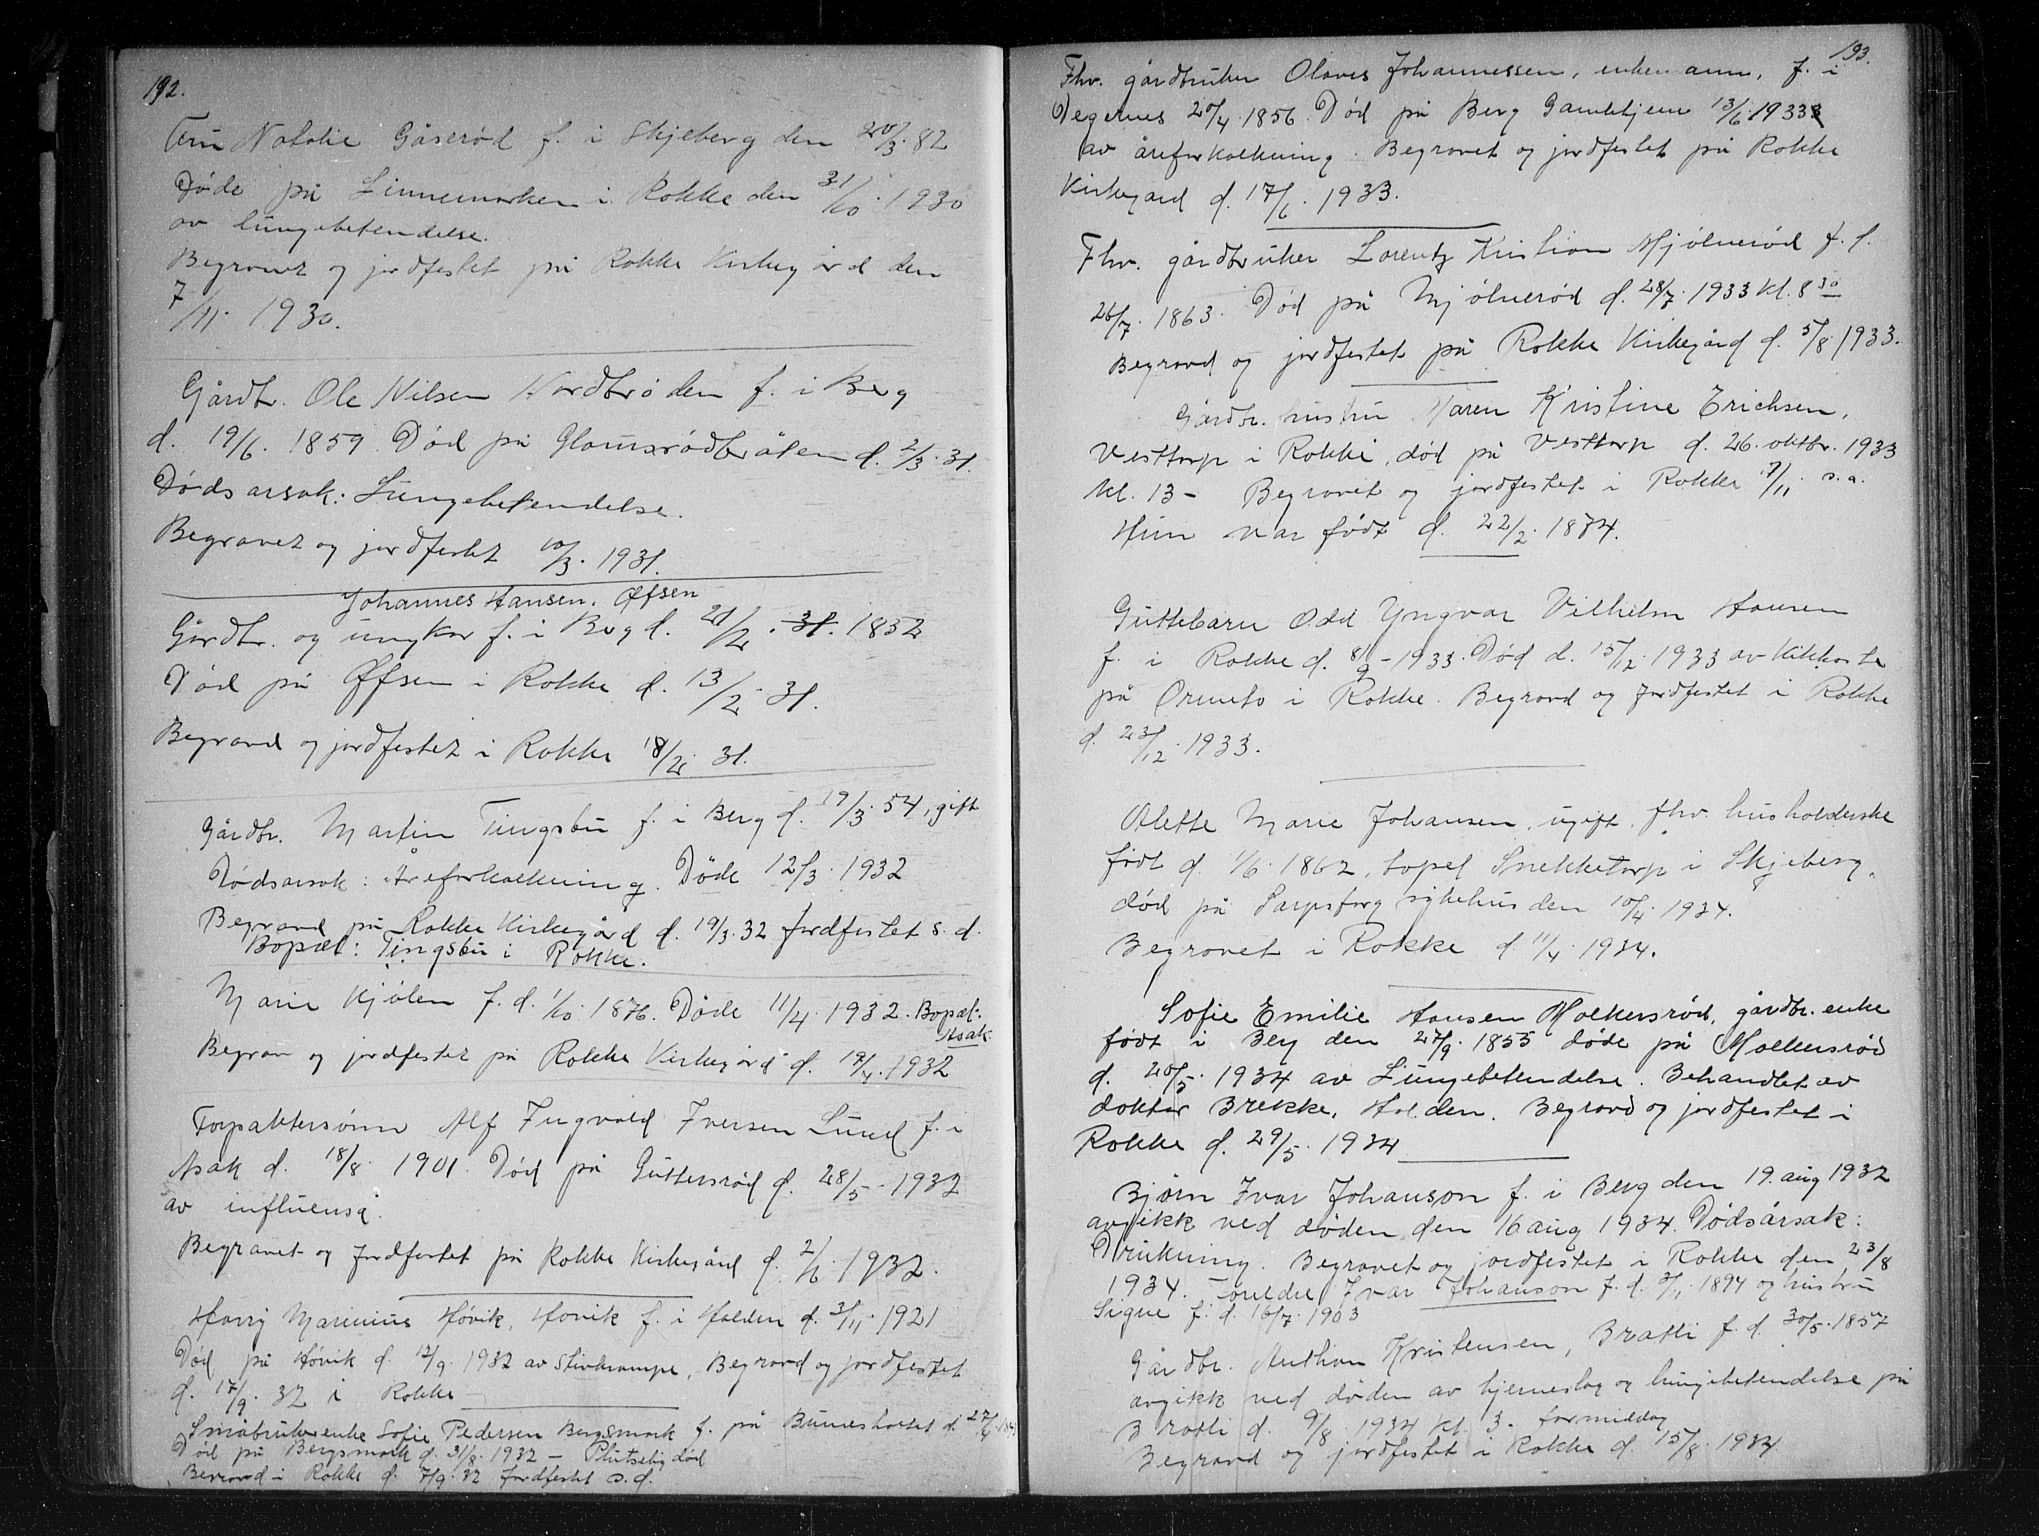 192.
Fru Natalie Gåserød f. i Skjeberg den 20/3. 82
Døde på Linnemarken i Rokke den 31/10. 1930
av lungebetendelse.
Begravet og jordfestet på Rokke Kirkegård den
7/11. 1930.
Gårdbr. Ole Nilsen Nordbrøden f. i Berg
d. 19/6. 1859. Død på Glomsrødbråten d. 2/3. 31.
Dødsarsak: Lungebetendelse.
Begravet og jordfestet 10/3. 1931.
Johannes Hansen. Øffsen
Gårdbr. og ungkar f. i Berg d. 21/2. 31. 1852
Død på Øffsen i Rokke d. 13/2. 31.
Begravd og jordfestet i Rokke 18/2. 31.
Gårdbr. Martin Tingsbu f. i Berg d. 19/3. 54, gift
Dødsarsak: Åreforkalkning. Døde 12/3. 1932
Begravd på Rokke Kirkegård d. 19/3. 32 jordfestet s. d.
Bopæl: Tingsbu i Rokke.
Marie Kjølen f. d. 1/10. 1876. Døde 11/4. 1932. Bopæl:
Asak.
Begrav og jordfestet på Rokke Kirkegård d. 19/4. 1932
Forpaktersønn Alf Ingvald Iversen Lund f. i
Asak d. 18/8. 1901. Død på Guttersrød d. 28/5. 1932
av influensa.
Begravet og jordfestet på Rokke Kirkegård d. 2/6. 1932.
Harry Marinius Høvik, Høvik f. i Halden d. 3/11. 1921
Død på Høvik d. 12/9. 1932 av Stivkrampe, Begravd og jordfestet
d. 17/9. 32 i Rokke
Småbrukerenke Sofie Pedersen Bergsmark f. på Bunesholtet d. 27/4
Død på Bergsmark d. 31/8. 1932 – Plutselig død
Begravd i Rokke d. 7/9. 32 jordfestet s. d.
193.
Fhv. gårdbruker Olaves Johannessen, enkemann, f. i
Degernes 20/4. 1856. Død på Berg Gamlehjem 13/6. 1933
av åreforkalkning. Begravet og jordfestet på Rokke
Kirkegård d. 17/6. 1933.
Fhv. gårdbruker Lorentz Kristian Mjølnerød f. d.
26/7. 1863. Død på Mjølnerød d. 28/7. 1933 kl. 8 30
Begravd og jordfestet på Rokke Kirkegård d. 5/8. 1933.
Gårdbr. hustru Maren Kristine Erichsen,
Vesttorp i Rokke, død på Vesttorp d. 26. oktbr. 1933
kl. 13 – Begravet og jordfestet i Rokke 7/11. s. a.
Hun var født d. 22/2. 1874.
Guttebarn Odd Yngvar Vilhelm Hansen
f. i Rokke d. 8/9 – 1933. Død d. 15/12. 1933 av Kikhoste
på Ormets i Rokke. Begravd og jordfestet i Rokke
d. 23/12. 1933.
Olette Marie Johansen, ugift, fhv. husholderske
født d. 1/6. 1862, bopel Snekketorp i Skjeberg,
død på Sarpsborg sykehus den 10/4. 1934.
Begravet i Rokke d. 11/4. 1934.
Sofie Emilie Hansen Holkersrød, gårdbr. enke
født i Berg den 27/9. 1855 døde på Holkersrød
d. 20/5. 1934 av Lungebetendelse. Behandlet av
doktor Brekke, Halden. Begravd og jordfestet i
Rokke d. 29/5. 1934
Bjørn Ivar Johanson f. i Berg den 19. aug 1932
avgikk ved døden den 16 aug 1934. Dødsårsak:
Drukning. Begravet og jordfestet i Rokke den 23/8
1934. Foreldre Ivar Johanson f. d. 3/11. 1894 og hustru
Signe f. d. 16/7. 1903
Gårdbr. Anthon Kristensen, Bratli f. d. 30/5. 1857
avgikk ved døden av hjerneslag og lungebetendelse på
Bratli d. 9/8. 1934 kl. 3. formiddag
Begravd og jordfestet i Rokke d. 15/8. 1934